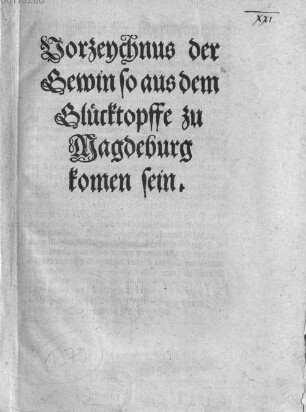 XXI
Vorzeychnus der
Gewin so aus dem
Glücktopffe zu
Magdeburg
komen sein.